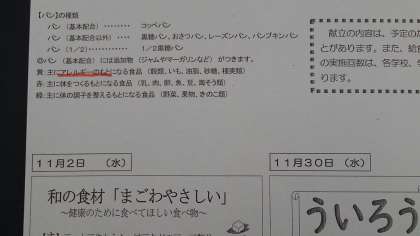 【パン】の種類
パン（基本配合）‥‥‥‥ コッペパン
パン（基本配合以外）‥‥ 黒糖パン、おさつパン、レーズンパン、パンプキンパン
パン（1／2）‥‥‥‥‥‥ 1／2黒糖パン
◎パン（基本配合）には追加物（ジャムやマーガリンなど）がつきます。
黄：主にアレルギーのもとになる食品（穀類、いも、油脂、砂糖、種実類）
赤：主に体をつくるもとになる食品（乳、肉、卵、魚、豆、海そう類）
緑：主に体の調子を整えるもとになる食品（野菜、果物、きのこ類）
献立の内容は、予定の
とがあります。また、給
の実施回数は、各学校、
す。
11月2日（水）
11月30日（水）
和の食材「まごわやさしい」
～健康のために食べてほしい食べ物～
ういろう